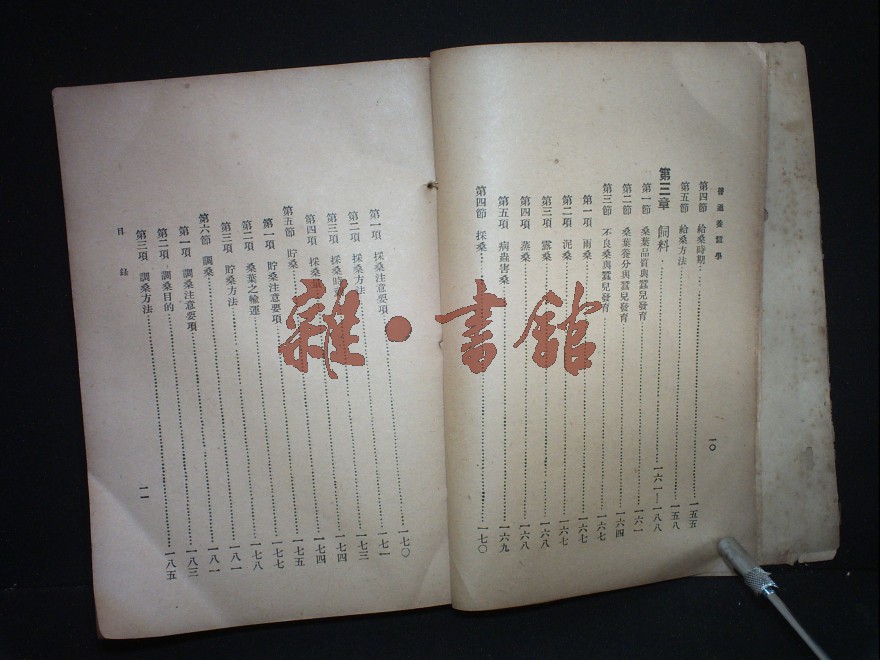 普通養蠶學
一〇
第四節 給桑時期 一五五
第五節 給桑方法 一五八
第三章 飼料 一六一—一八八
第一節 桑葉品質與蠶兒發育 一六一
第二節 桑葉養分與蠶兒發育 一六四
第三節 不良桑與蠶兒發育 一六七
第一項 雨桑 一六七
第二項 泥桑 一六七
第三項 露桑 一六八
第四項 蒸桑 一六八
第五項 病蟲害桑 一六九
第四節 採桑 一七〇
第一項 採桑注意要項 一七〇
第二項 採桑方法 一七一
第三項 採桑時 一七三
第四項 採桑 一七四
第五節 貯桑 一七五
第一項 貯桑注意要項 一七七
第二項 桑葉之輸運 一七八
第三項 貯桑方法 一八一
第六節 調桑 一八一
第一項 調桑注意要項 一八三
第二項 調桑目的
第三項 調桑方法 一八五
目錄
一一
雜·書館